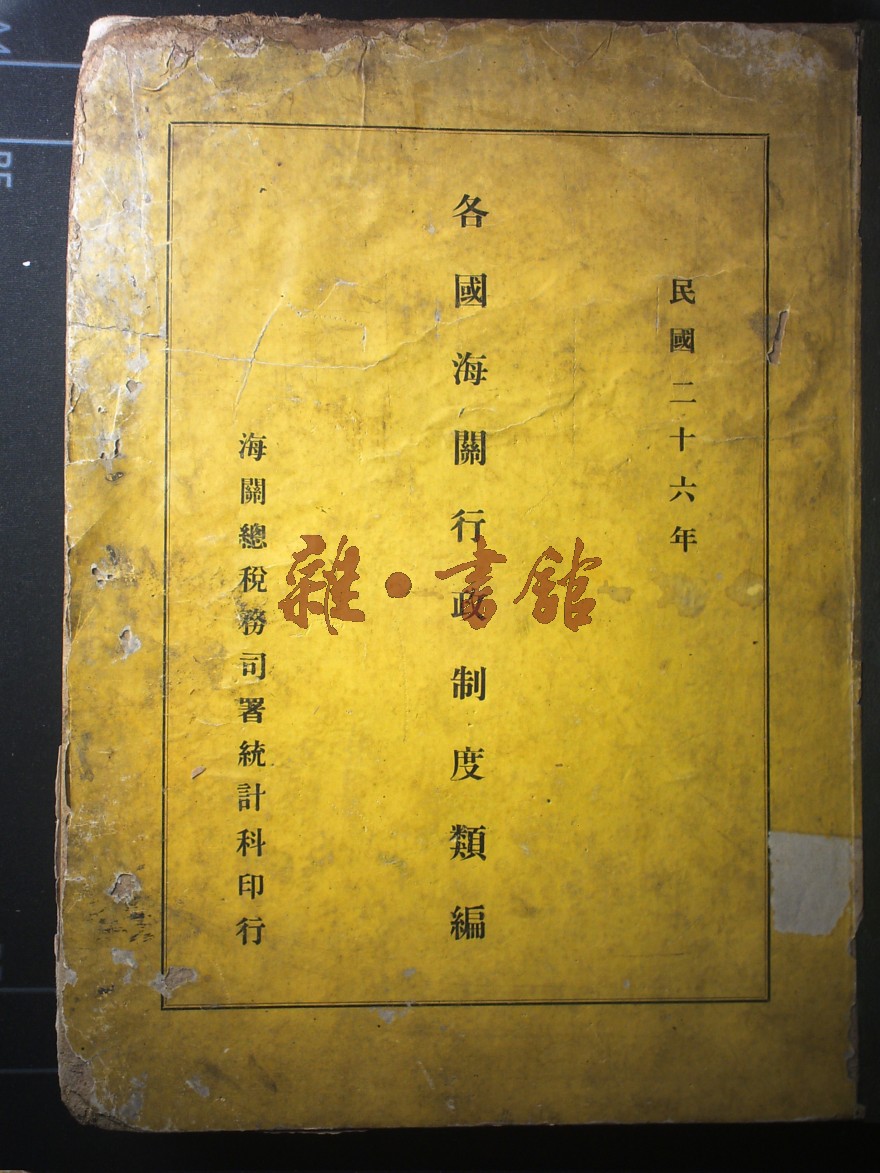 民國二十六年
各國海關行政制度類編
海關總稅務司署統計科印行
雜·書館